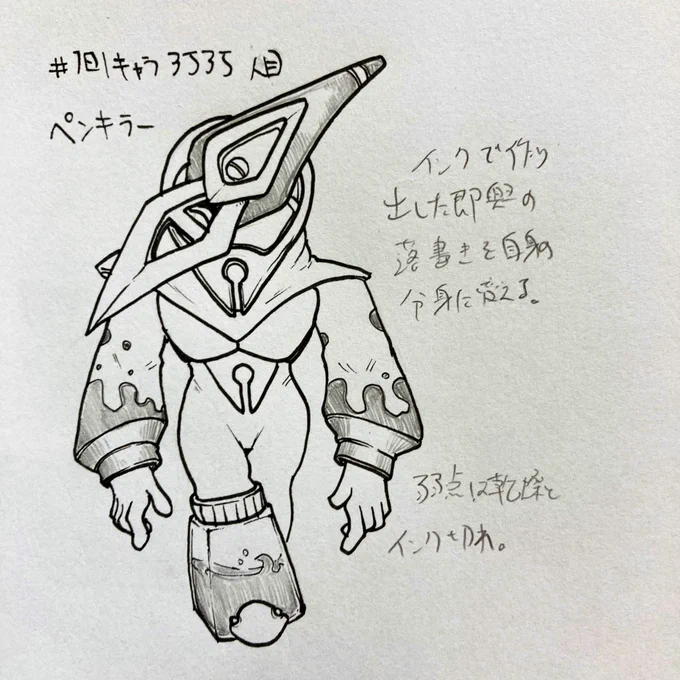 #1日1キャラ3535人目
ペンキラー
インクで作り
出した即興の
落書きを自身の
分身に変える。
弱点は乾燥と
インク切れ。